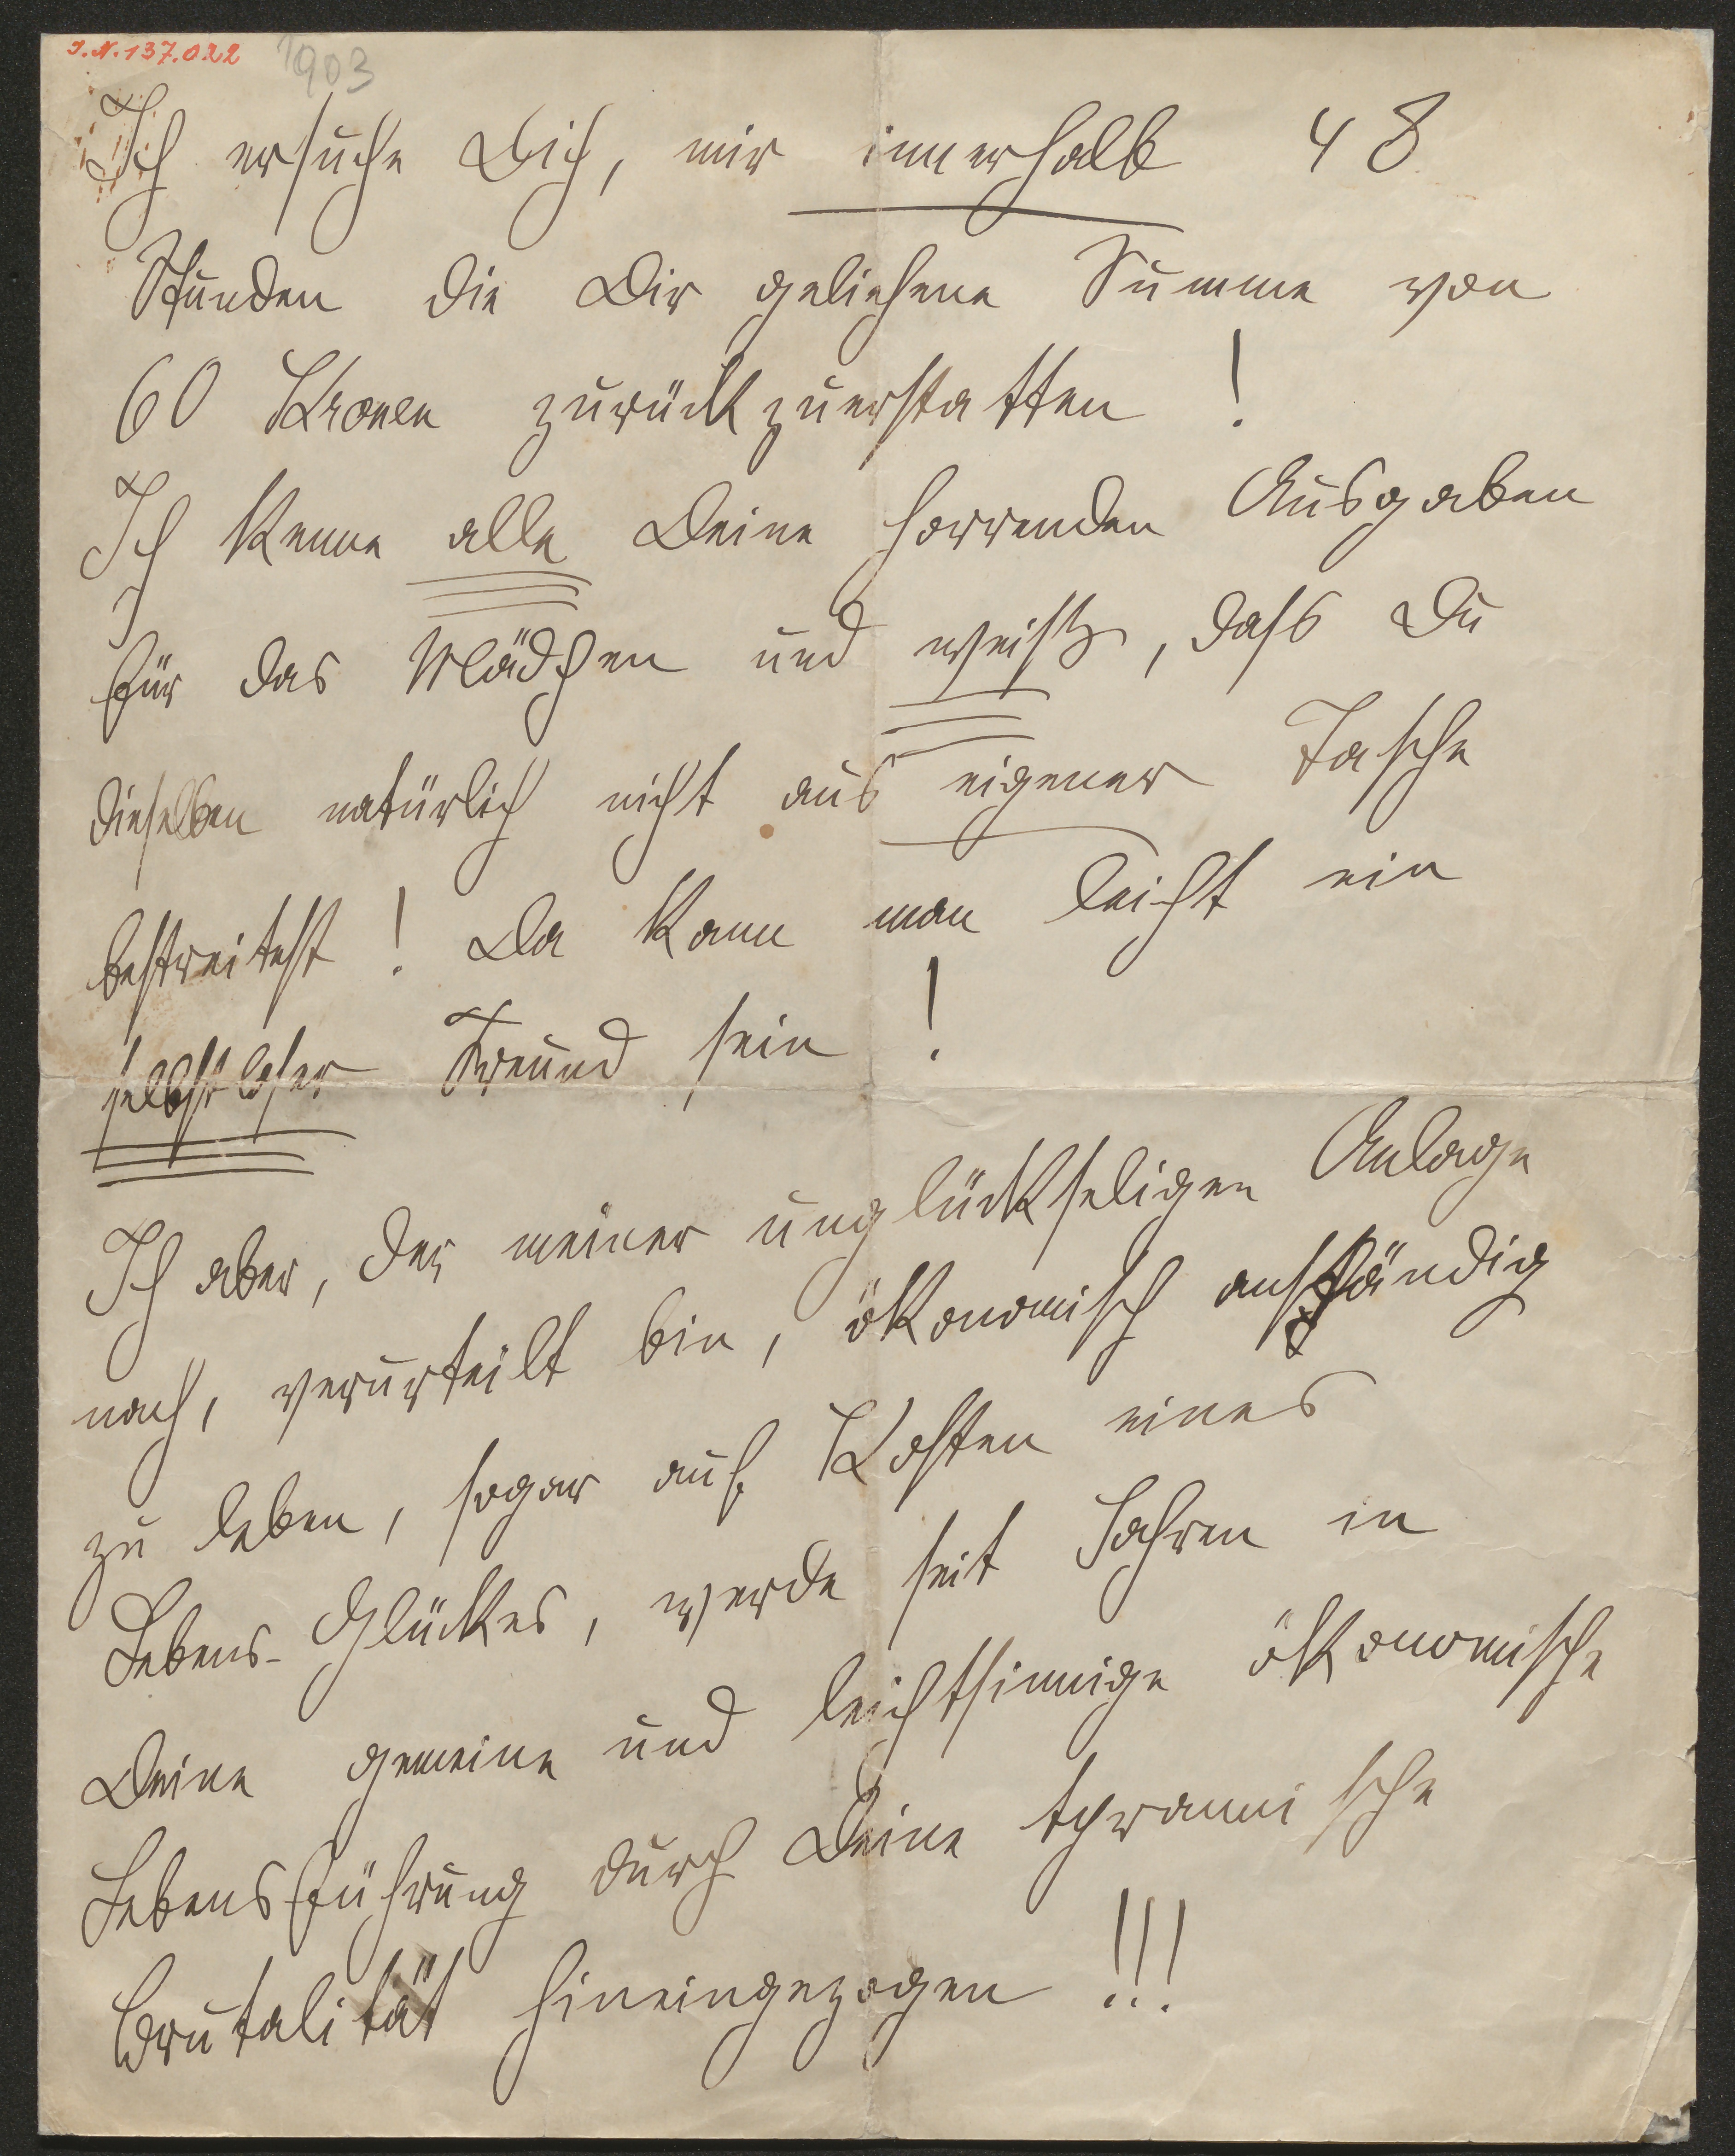 I.N. 137.022
1903
Ich ersuche Dich, mir innerhalb 48
Stunden die Dir geliehene Summe von
60 Kronen zurückzuerstatten !
Ich kenne alle Deine horrenden Ausgaben
für das Mädchen und weiß, dass Du
dieselben natürlich nicht aus eigener Tasche
bestreitest ! Da kann man leicht ein
selbstloser Freund sein !
Ich aber, der meiner unglückseligen Anlage
nach, verurteilt bin, ökonomisch anständig
zu leben, sogar auf Kosten eines
Lebens-Glückes, werde seit Jahren in
Deine gemeine und leichtsinnige ökonomische
Lebensführung durch Deine tyrannische
Brutalität hineingezogen !!!